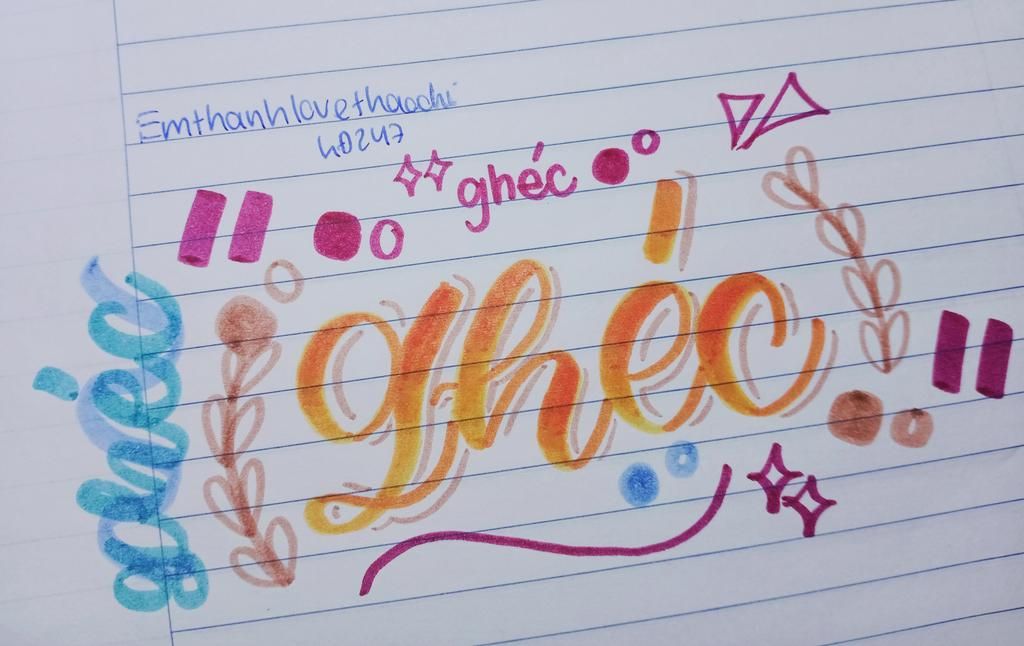 Emthanhlovethaochi
40247
ghéc
ghéc
ghéc